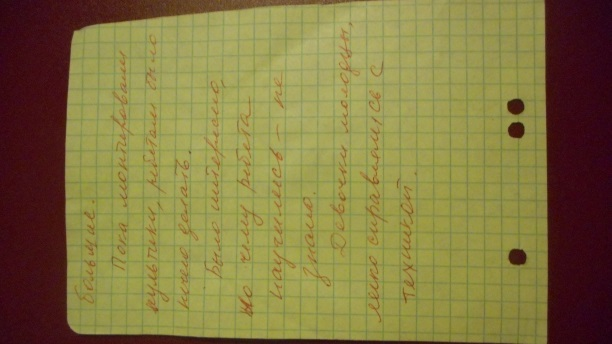 большие.
Пока монтировали
мультики, ребятам было
нечего делать.
Было интересно,
но чему ребята
научились – не
знаю.
Девочки молодцы,
легко справлялись с
техникой.